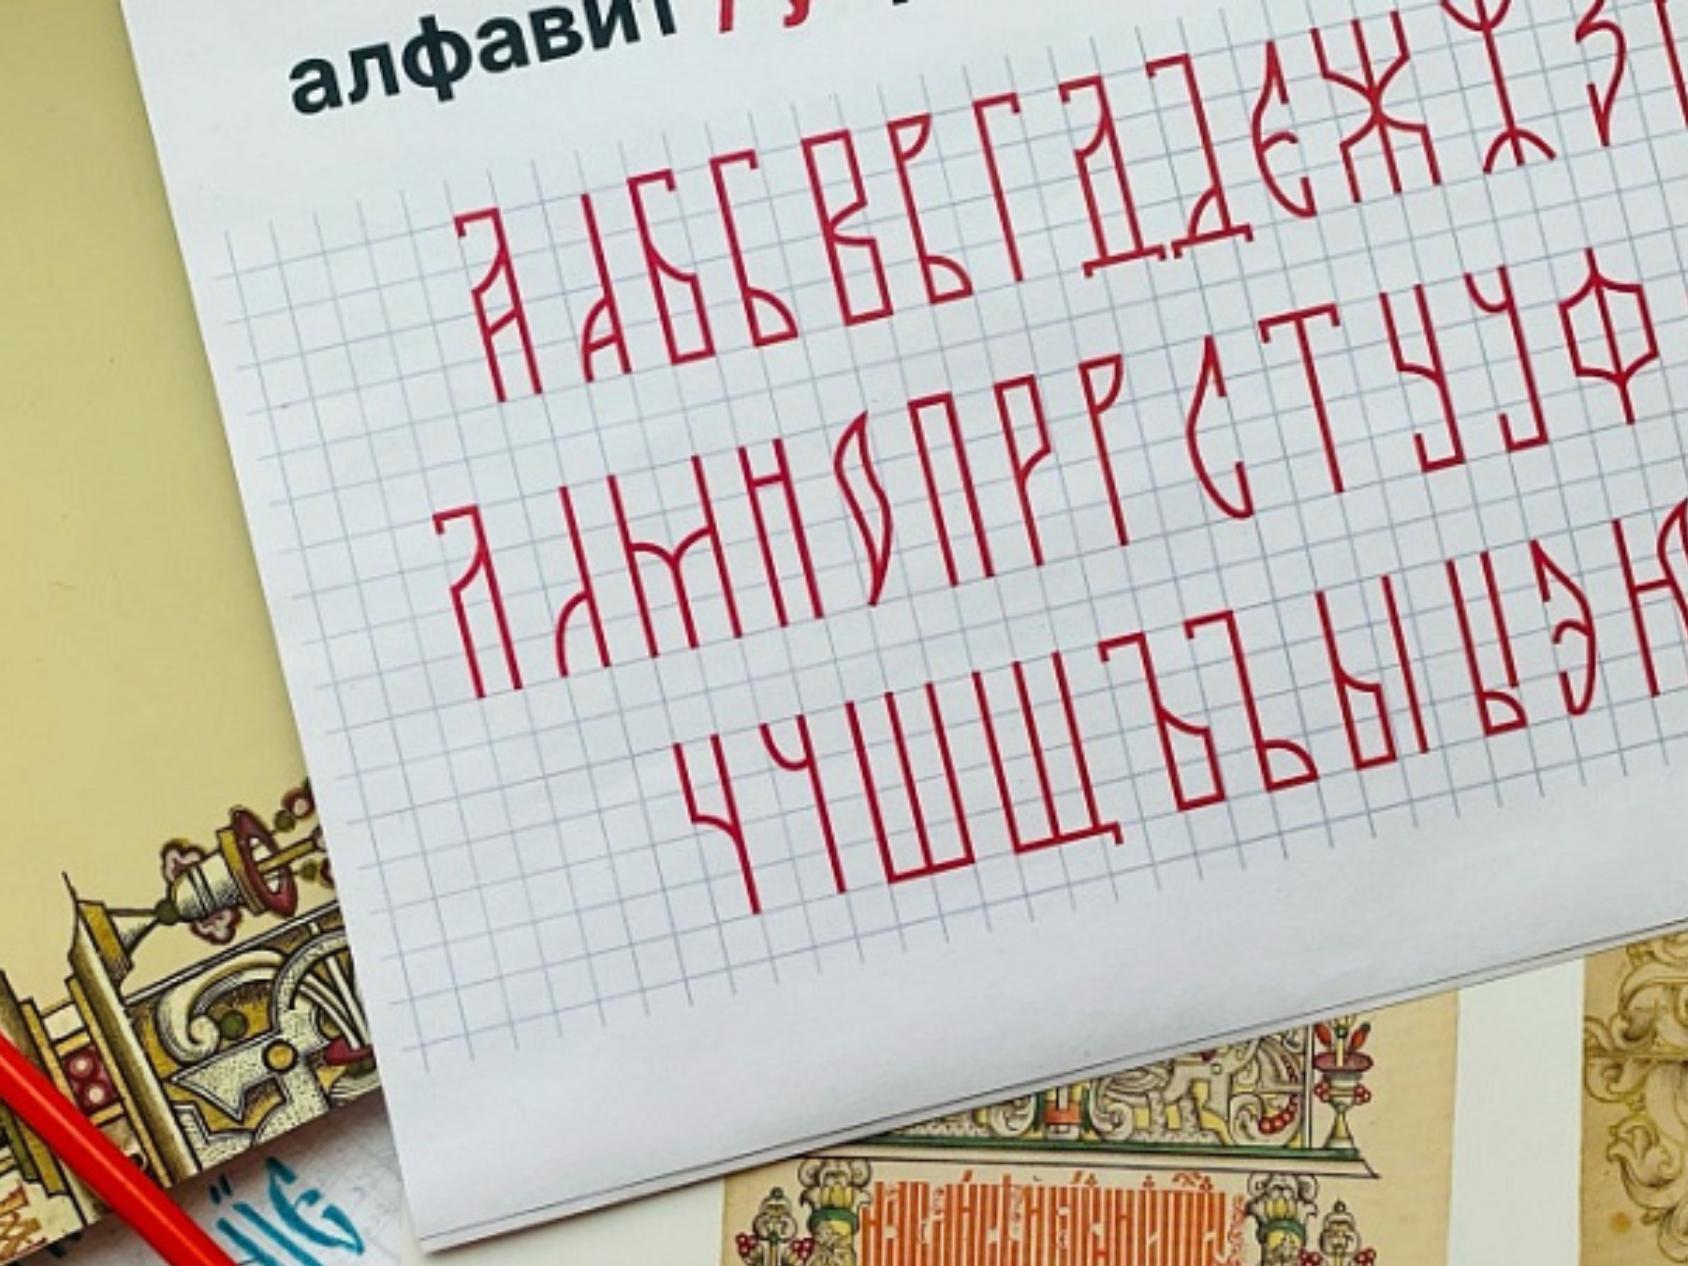 алфавит
А А Б Б В В Г Д Д Е Ж Ж З
Л Л М Н О П Р Р С Т У У Ф
Ч Ч Ш Щ Ъ Ъ Ы Ы Э Ю